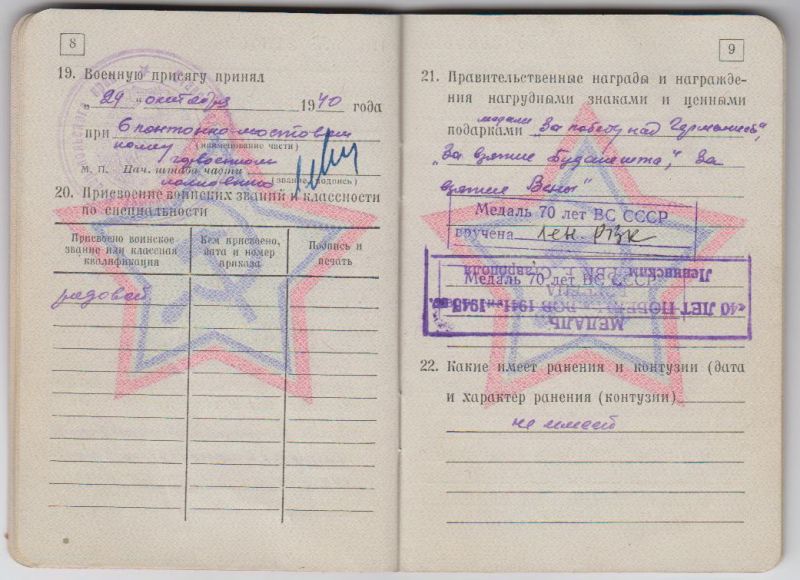 8
19. Военную присягу принял
„ 29 „ октября 1940 года
при 6 понтонно-мостовом
полку
(наименование части)
М. П. Нач. штаба части
(звание, подпись)
20. Присвоение воинских званий и классности
по специальности
Присвоено воинское звание или классная квалификация
Кем присвоено, дата и номер приказа
Подпись и печать
рядовой
9
21. Правительственные награды и награжде-
ния нагрудными знаками и ценными
подарками медали „За победу над Германией",
„За взятие Будапешта", „За
взятие Вены"
Медаль 70 лет ВС СССР
вручена Лен. РВК
Медаль 70 лет ВС СССР
МЕДАЛЬ
«40 ЛЕТ ПОБЕДЫ В ВОВ 1941—1945 гг.»
Ленинским РВК г. Ставрополя
22. Какие имеет ранения и контузии (дата
и характер ранения (контузии)
не имеет